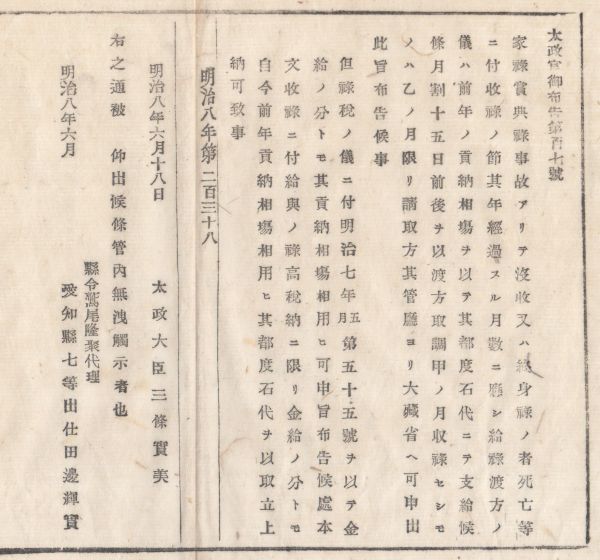 太政官御布告第百七號
家祿賞典祿事故アリテ沒收又ハ終身祿ノ者死亡等
ニ付收祿ノ節其年經過スル月數ニ應シ給祿渡方ノ
儀ハ前年ノ貢納相塲ヲ以テ其都度石代ニテ支給候
條月割十五日前後ヲ以渡方取調甲ノ月收祿セシモ
ノハ乙ノ月限リ請取方其管廳ヨリ大藏省ヘ可申出
此旨布告候事
但祿稅ノ儀ニ付明治七年五月第五十五號ヲ以テ金
給ノ分トモ其貢納相塲相用ヒ可申旨布告候處本
文收祿ニ付給與ノ祿高稅納ニ限リ金給ノ分トモ
自今前年貢納相塲相用ヒ其都度石代ヲ以取立上
納可致事
明治八年第二百三十八
明治八年六月十八日 太政大臣三條實美
右之通被 仰出候條管內無洩觸示者也
縣令鷲尾隆聚代理
明治八年六月 愛知縣七等出仕田邊輝實